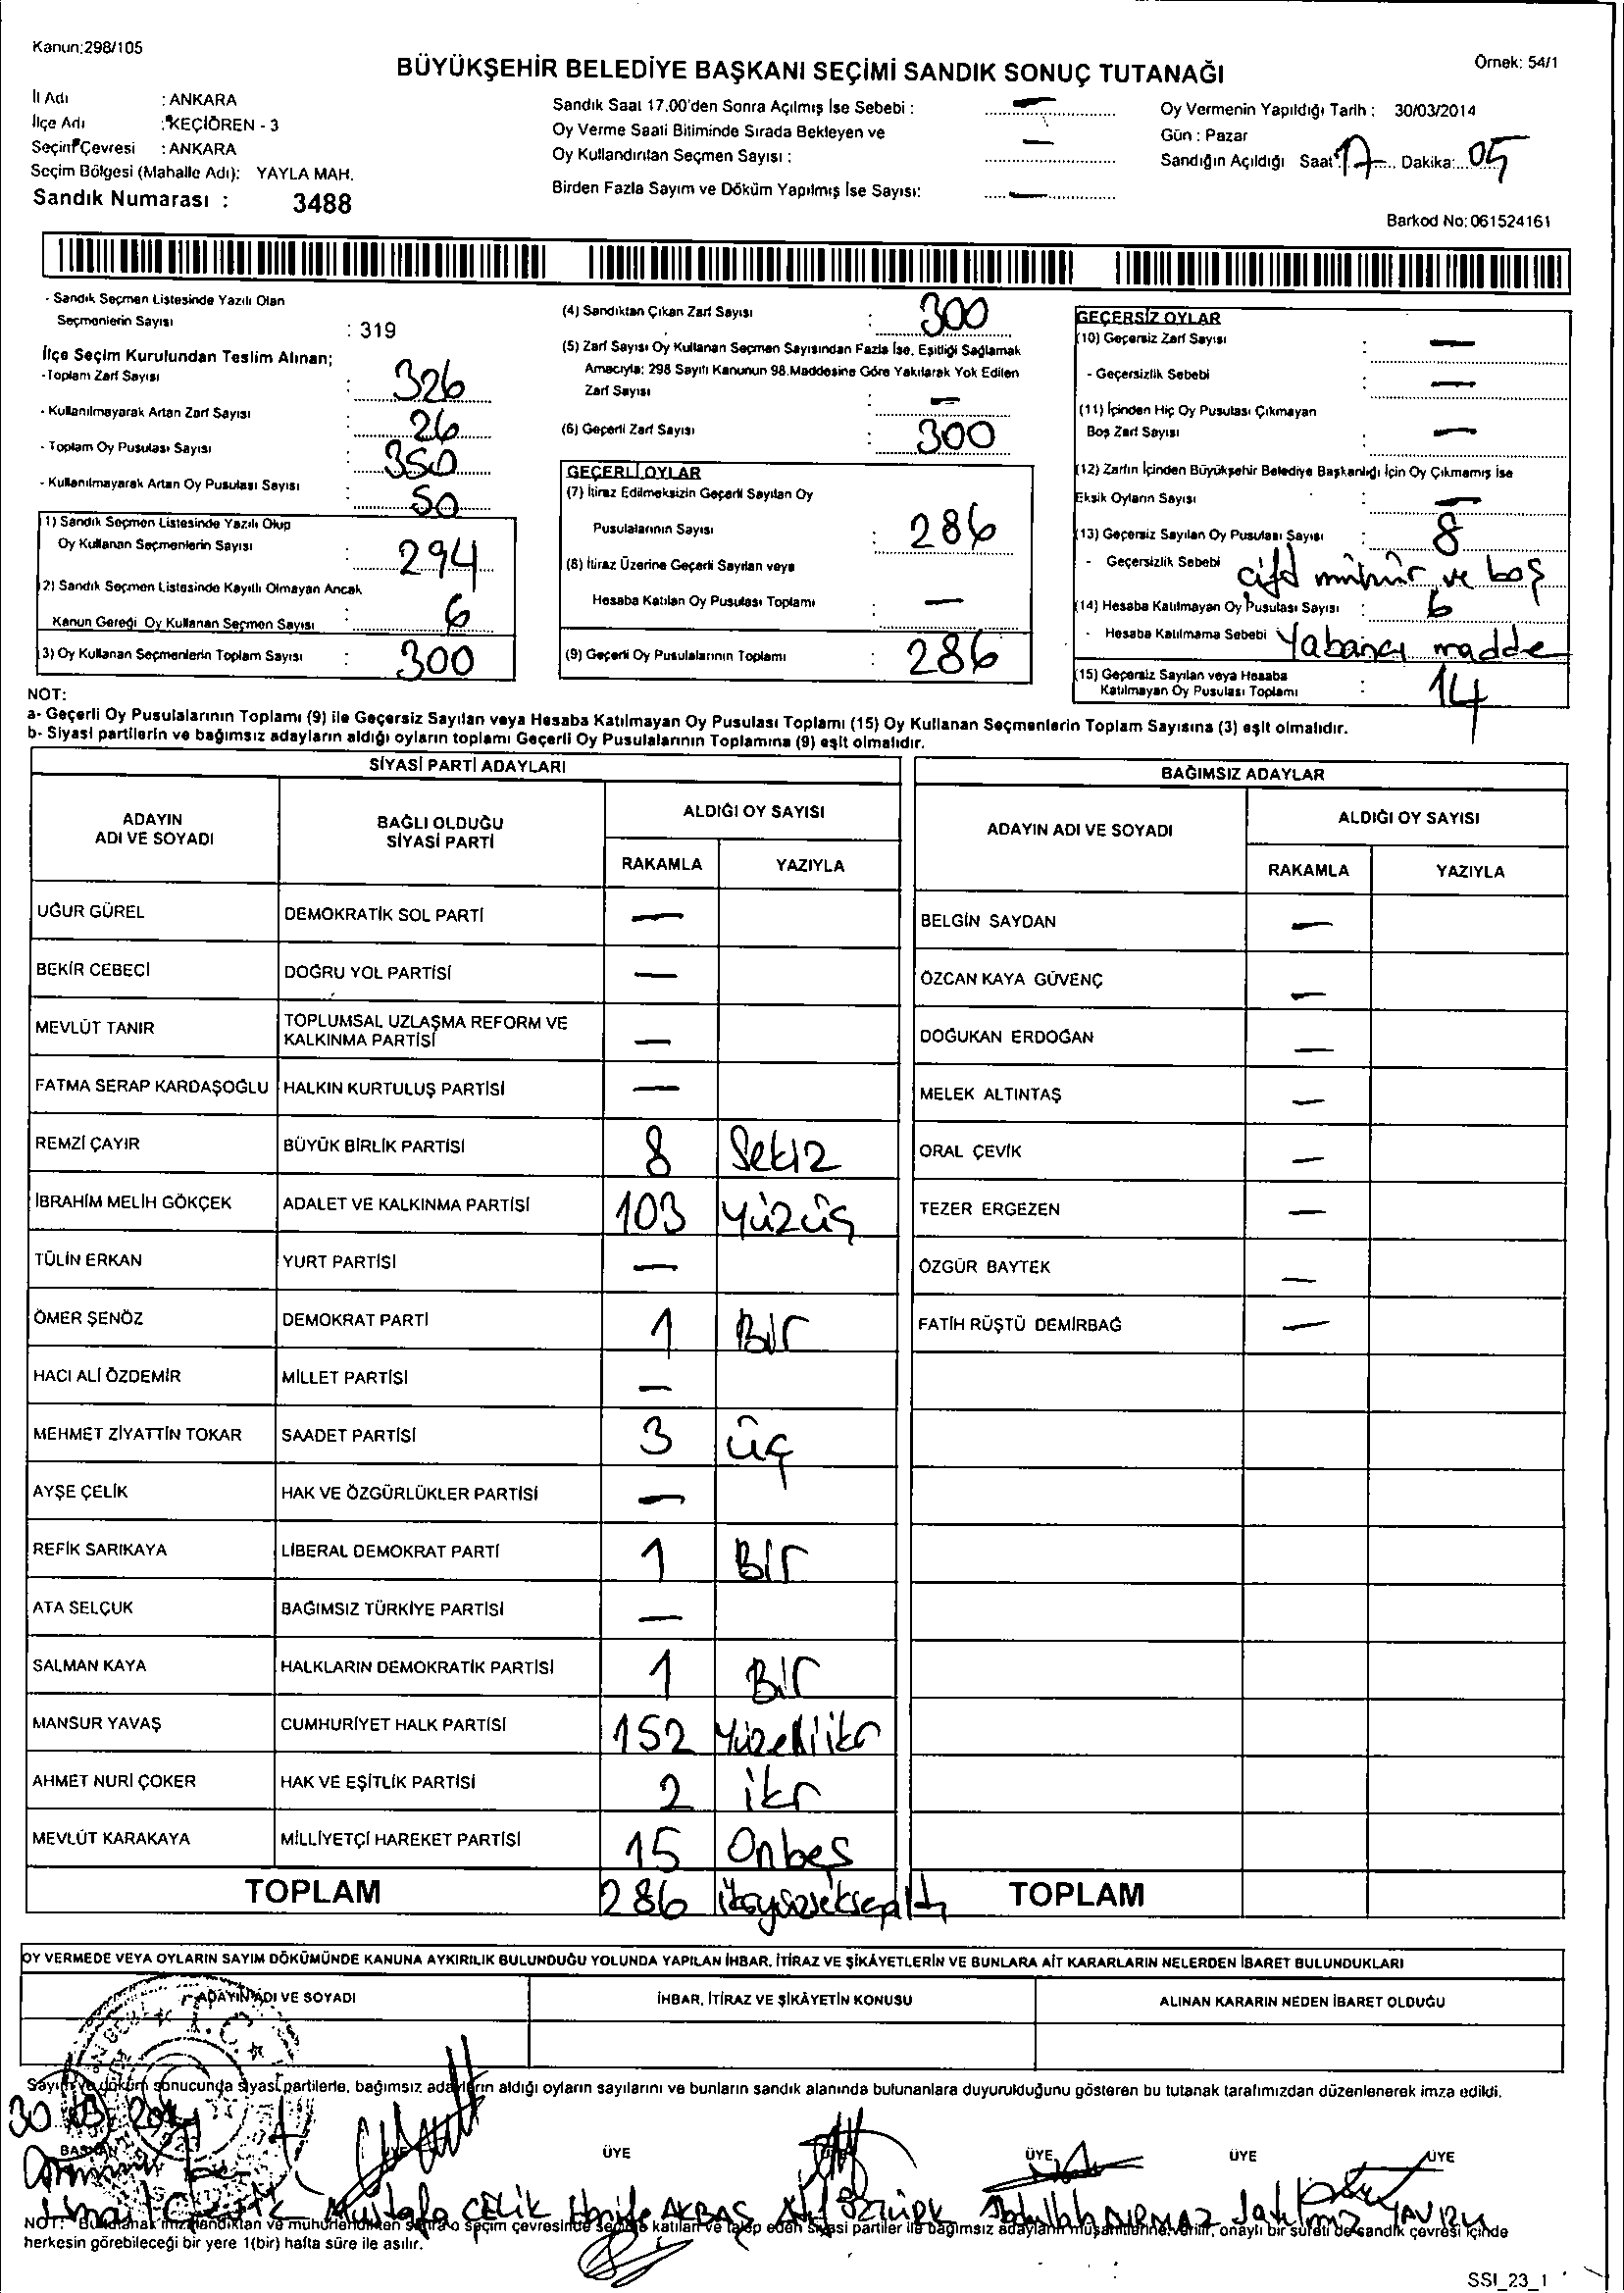 Kanun:298/105
BÜYÜKŞEHİR BELEDİYE BAŞKANI SEÇİMİ SANDIK SONUÇ TUTANAĞI
Örnek: 54/1
İl Adı : ANKARA
İlçe Adı : KEÇİÖREN - 3
Seçim Çevresi : ANKARA
Seçim Bölgesi (Mahalle Adı): YAYLA MAH.
Sandık Numarası : 3488
Sandık Saat 17.00'den Sonra Açılmış İse Sebebi : —
Oy Verme Saati Bitiminde Sırada Bekleyen ve
Oy Kullandırılan Seçmen Sayısı : —
Birden Fazla Sayım ve Döküm Yapılmış İse Sayısı: —
Oy Vermenin Yapıldığı Tarih : 30/03/2014
Gün : Pazar
Sandığın Açıldığı Saat: 17 Dakika: 05
Barkod No: 061524161
- Sandık Seçmen Listesinde Yazılı Olan
Seçmenlerin Sayısı : 319
İlçe Seçim Kurulundan Teslim Alınan;
-Toplam Zarf Sayısı : 326
- Kullanılmayarak Artan Zarf Sayısı : 26
- Toplam Oy Pusulası Sayısı : 350
- Kullanılmayarak Artan Oy Pusulası Sayısı : 50
1) Sandık Seçmen Listesinde Yazılı Olup
Oy Kullanan Seçmenlerin Sayısı : 294
2) Sandık Seçmen Listesinde Kayıtlı Olmayan Ancak
Kanun Gereği Oy Kullanan Seçmen Sayısı : 6
3) Oy Kullanan Seçmenlerin Toplam Sayısı : 300
(4) Sandıktan Çıkan Zarf Sayısı : 300
(5) Zarf Sayısı Oy Kullanan Seçmen Sayısından Fazla İse, Eşitliği Sağlamak
Amacıyla: 298 Sayılı Kanunun 98.Maddesine Göre Yakılarak Yok Edilen
Zarf Sayısı : —
(6) Geçerli Zarf Sayısı : 300
GEÇERLİ OYLAR
(7) İtiraz Edilmeksizin Geçerli Sayılan Oy
Pusulalarının Sayısı : 286
(8) İtiraz Üzerine Geçerli Sayılan veya
Hesaba Katılan Oy Pusulası Toplamı : —
(9) Geçerli Oy Pusulalarının Toplamı : 286
GEÇERSİZ OYLAR
(10) Geçersiz Zarf Sayısı : —
- Geçersizlik Sebebi : —
(11) İçinden Hiç Oy Pusulası Çıkmayan
Boş Zarf Sayısı : —
(12) Zarfın İçinden Büyükşehir Belediye Başkanlığı İçin Oy Çıkmamış İse
Eksik Oyların Sayısı : —
(13) Geçersiz Sayılan Oy Pusulası Sayısı : 8
- Geçersizlik Sebebi çift mühür ve boş
(14) Hesaba Katılmayan Oy Pusulası Sayısı : 6
- Hesaba Katılmama Sebebi Yabancı madde
(15) Geçersiz Sayılan veya Hesaba
Katılmayan Oy Pusulası Toplamı : 14
NOT:
a- Geçerli Oy Pusulalarının Toplamı (9) ile Geçersiz Sayılan veya Hesaba Katılmayan Oy Pusulası Toplamı (15) Oy Kullanan Seçmenlerin Toplam Sayısına (3) eşit olmalıdır.
b- Siyasi partilerin ve bağımsız adayların aldığı oyların toplamı Geçerli Oy Pusulalarının Toplamına (9) eşit olmalıdır.
SİYASİ PARTİ ADAYLARI
ADAYIN ADI VE SOYADI BAĞLI OLDUĞU SİYASİ PARTİ ALDIĞI OY SAYISI
RAKAMLA YAZIYLA
UĞUR GÜREL DEMOKRATİK SOL PARTİ —
BEKİR CEBECİ DOĞRU YOL PARTİSİ —
MEVLÜT TANIR TOPLUMSAL UZLAŞMA REFORM VE KALKINMA PARTİSİ —
FATMA SERAP KARDAŞOĞLU HALKIN KURTULUŞ PARTİSİ —
REMZİ ÇAYIR BÜYÜK BİRLİK PARTİSİ 8 Sekiz
İBRAHİM MELİH GÖKÇEK ADALET VE KALKINMA PARTİSİ 103 Yüzüç
TÜLİN ERKAN YURT PARTİSİ —
ÖMER ŞENÖZ DEMOKRAT PARTİ 1 Bir
HACI ALİ ÖZDEMİR MİLLET PARTİSİ —
MEHMET ZİYATTİN TOKAR SAADET PARTİSİ 3 üç
AYŞE ÇELİK HAK VE ÖZGÜRLÜKLER PARTİSİ —
REFİK SARIKAYA LİBERAL DEMOKRAT PARTİ 1 Bir
ATA SELÇUK BAĞIMSIZ TÜRKİYE PARTİSİ —
SALMAN KAYA HALKLARIN DEMOKRATİK PARTİSİ 1 Bir
MANSUR YAVAŞ CUMHURİYET HALK PARTİSİ 152 Yüzelliiki
AHMET NURİ ÇOKER HAK VE EŞİTLİK PARTİSİ 2 iki
MEVLÜT KARAKAYA MİLLİYETÇİ HAREKET PARTİSİ 15 Onbeş
TOPLAM 286 ikiyüzseksenaltı
BAĞIMSIZ ADAYLAR
ADAYIN ADI VE SOYADI ALDIĞI OY SAYISI
RAKAMLA YAZIYLA
BELGİN SAYDAN —
ÖZCAN KAYA GÜVENÇ —
DOĞUKAN ERDOĞAN —
MELEK ALTINTAŞ —
ORAL ÇEVİK —
TEZER ERGEZEN —
ÖZGÜR BAYTEK —
FATİH RÜŞTÜ DEMİRBAĞ —
TOPLAM
OY VERMEDE VEYA OYLARIN SAYIM DÖKÜMÜNDE KANUNA AYKIRILIK BULUNDUĞU YOLUNDA YAPILAN İHBAR, İTİRAZ VE ŞİKÂYETLERİN VE BUNLARA AİT KARARLARIN NELERDEN İBARET BULUNDUKLARI
ADAYIN ADI VE SOYADI İHBAR, İTİRAZ VE ŞİKÂYETİN KONUSU ALINAN KARARIN NEDEN İBARET OLDUĞU
T.C.
Sayım ve döküm sonucunda siyasi partilerle, bağımsız adayların aldığı oyların sayılarını ve bunların sandık alanında bulunanlara duyurulduğunu gösteren bu tutanak tarafımızdan düzenlenerek imza edildi.
30 03 2014
BAŞKAN ÜYE ÜYE ÜYE ÜYE ÜYE
Mustafa ÇELİK AKBAŞ ÖZTÜRK Abdullah DURMAZ
NOT: Bu tutanak imzalandıktan ve mühürlendikten sonra o seçim çevresinde seçime katılan ve talep eden siyasi partiler ile bağımsız adayların müşahitlerine verilir, onaylı bir sureti de sandık çevresi içinde
herkesin görebileceği bir yere 1(bir) hafta süre ile asılır.
SSI_23_1